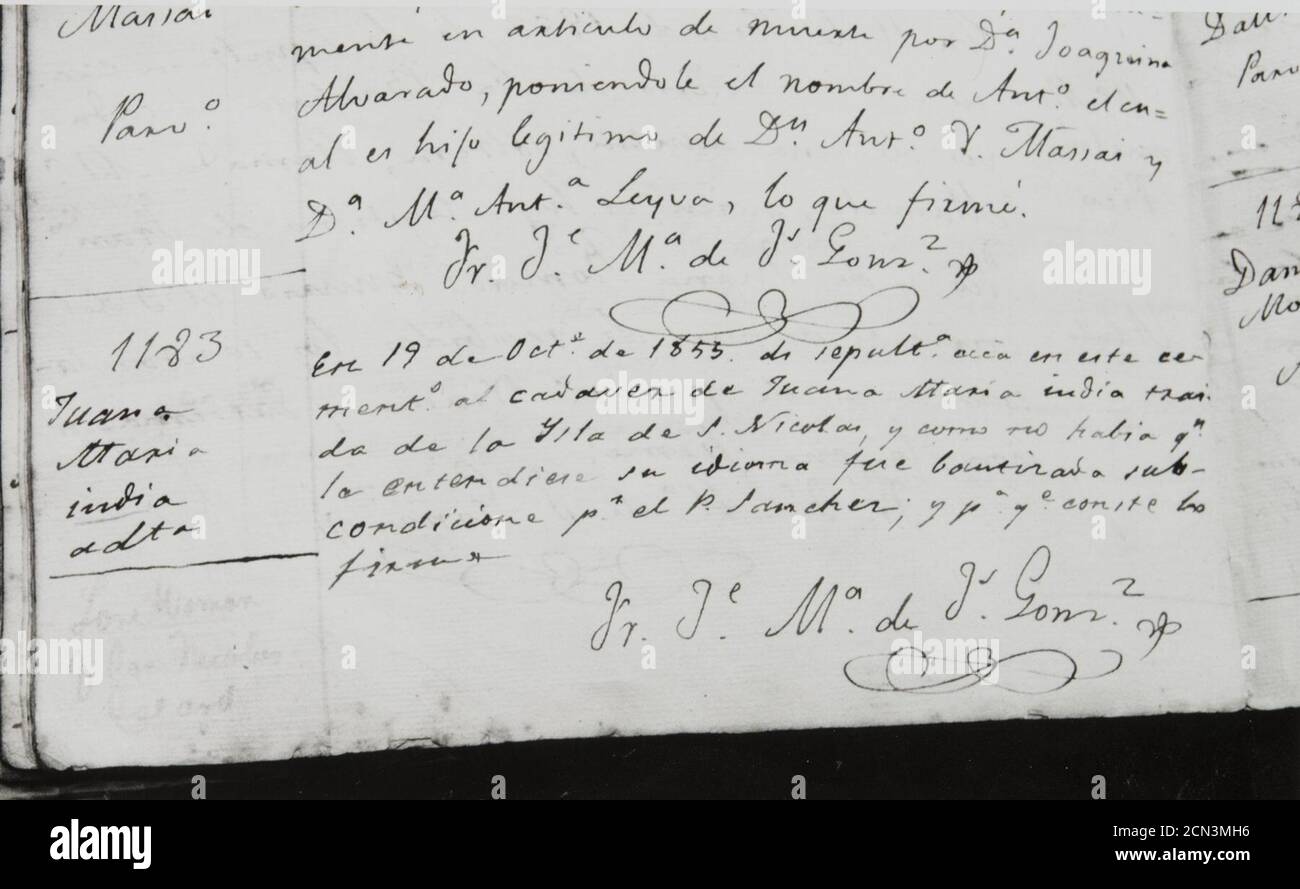 Massai
Parvº
mente en articulo de muerte por Dª Joaquina
Alvarado, poniendole el nombre de Antº el cu=
al es hijo legitimo de Dn Antº V. Massai y
Dª Mª Antª Leyva, lo que firmé.
Fr. Je Mª de Js Gonz
1183
Juana
Maria
india
adta
En 19 de Octe de 1853. di sepultª ecca en este ce-
mentº al cadaver de Juana Maria india trai-
da de la Ysla de S. Nicolas, y como no habia qn
la entendiese su idioma fue bautizada sub-
condicione pr el P. Sanchez; y pª qe conste lo
firmo
Fr. Je Mª de Js Gonz
Parv
118
Dam
Mo
alamy
alamy
alamy
alamy
Image ID: 2CN3MH6
www.alamy.com